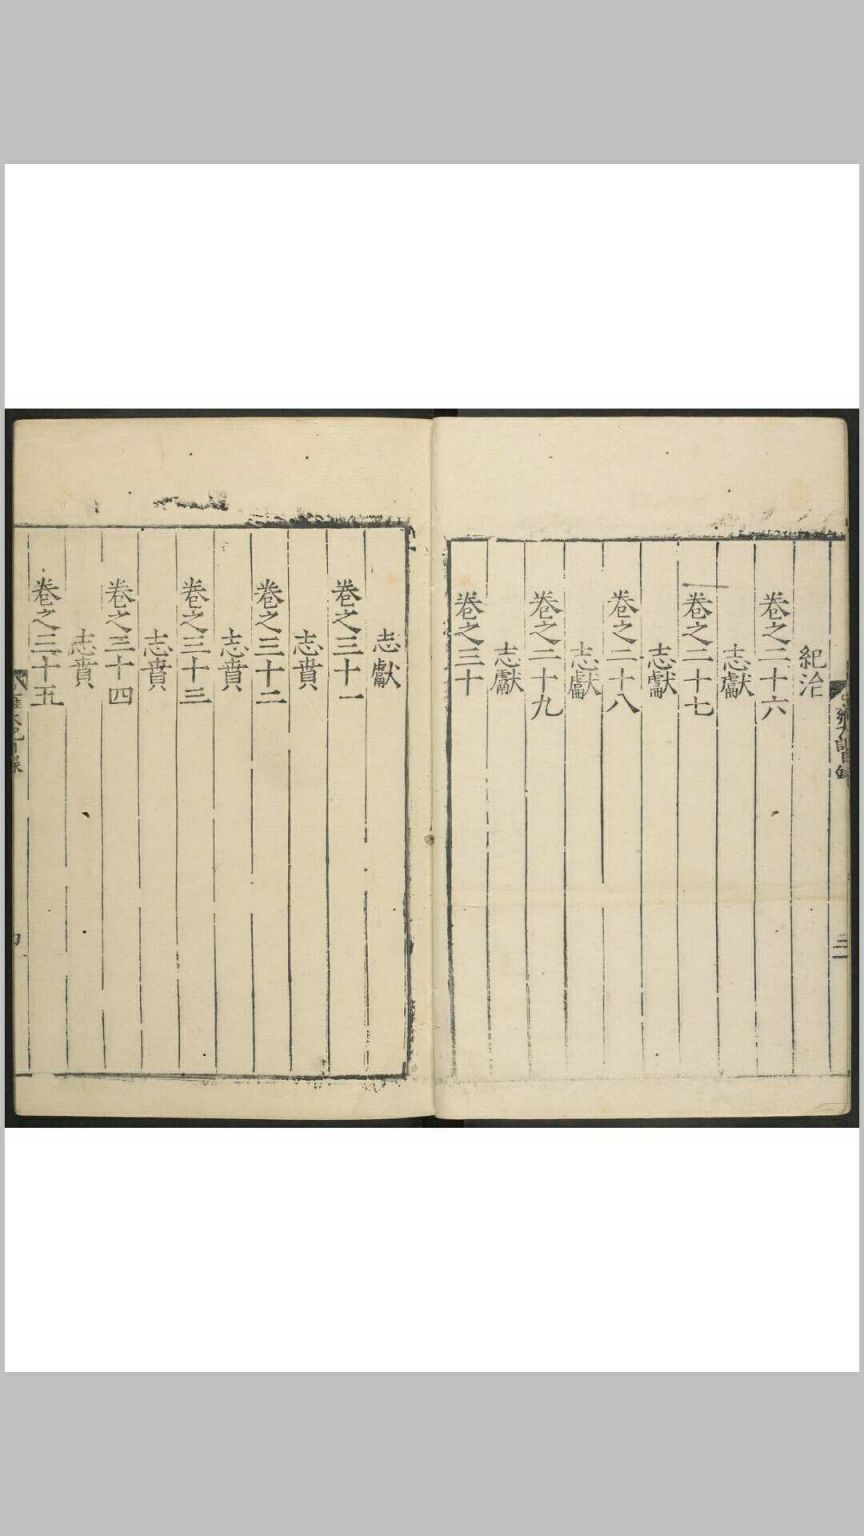 紀治
卷之二十六
志獻
卷之二十七
志獻
卷之二十八
志獻
卷之二十九
志獻
卷之三十
志獻
卷之三十一
志賁
卷之三十二
志賁
卷之三十三
志賁
卷之三十四
志賁
卷之三十五